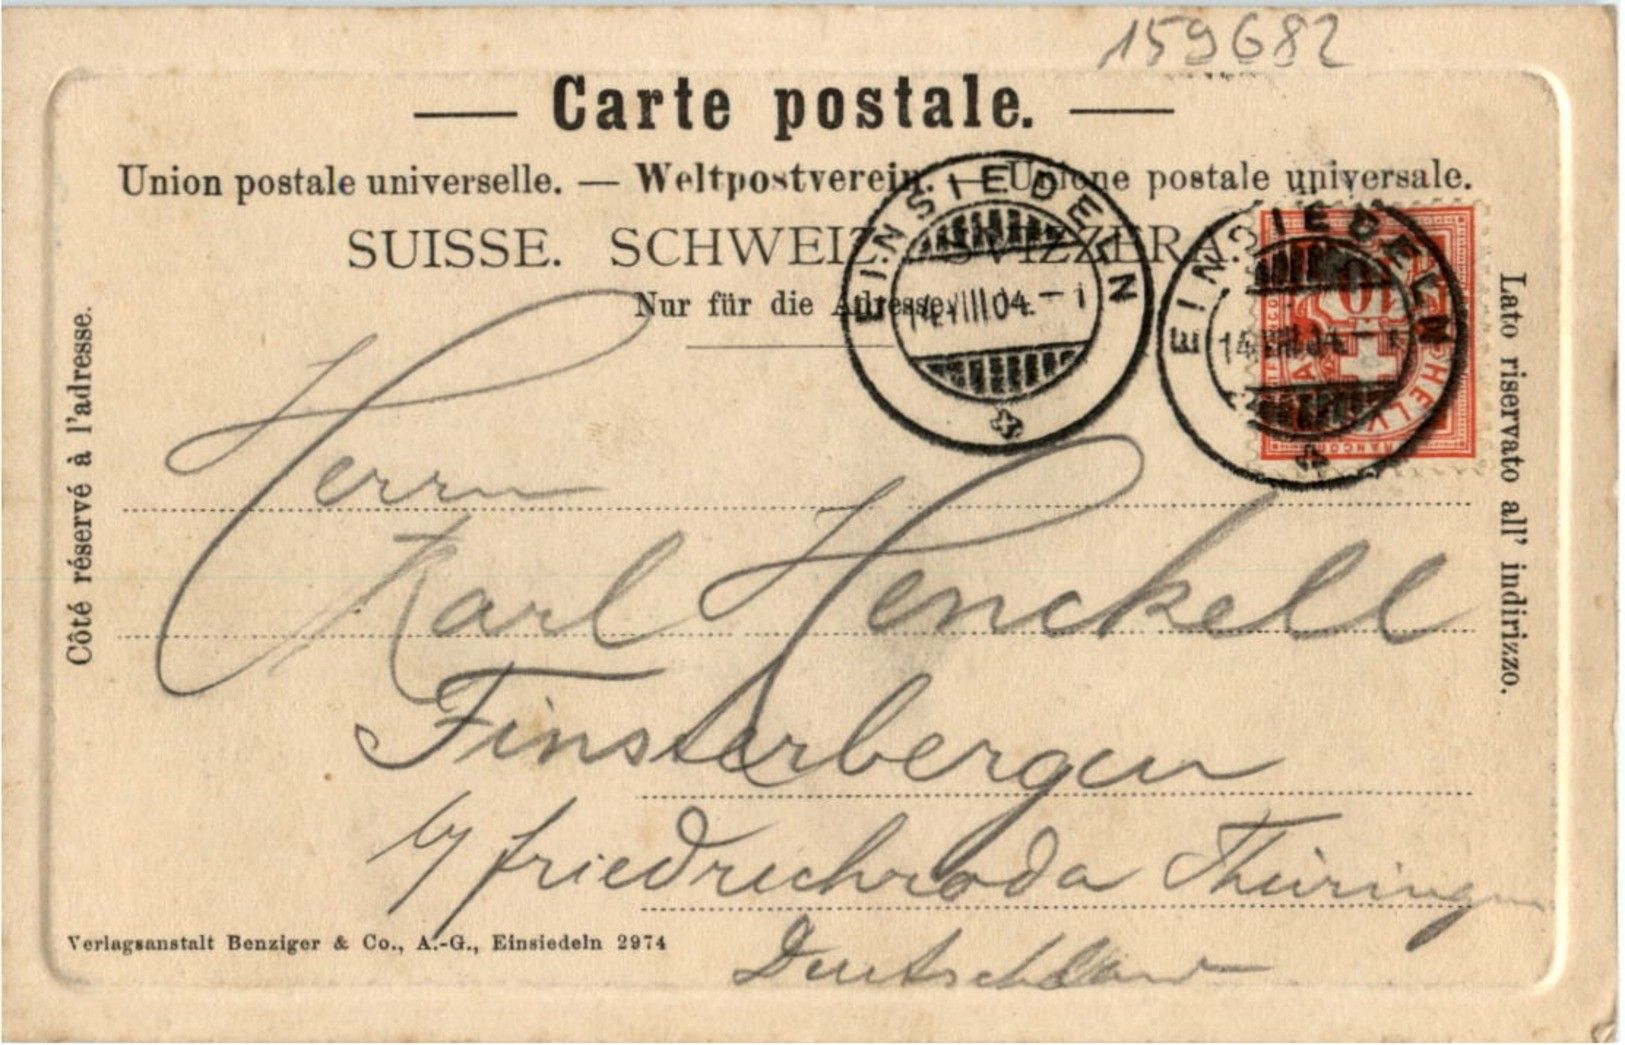 159682
— Carte postale. —
Union postale universelle. — Weltpostverein. — Unione postale universale.
SUISSE. SCHWEIZ. SVIZZERA.
Nur für die Adresse.
EINSIEDELN
14.VIII.04.–1
EINSIEDELN
14.VIII.04.–1
10
HELVETIA
FRANCO
Côté réservé à l'adresse.
Lato riservato all' indirizzo.
Herrn
Karl Henckell
Finsterbergen
b/ Friedrichroda Thüringen
Deutschland
Verlagsanstalt Benziger & Co., A.-G., Einsiedeln 2974